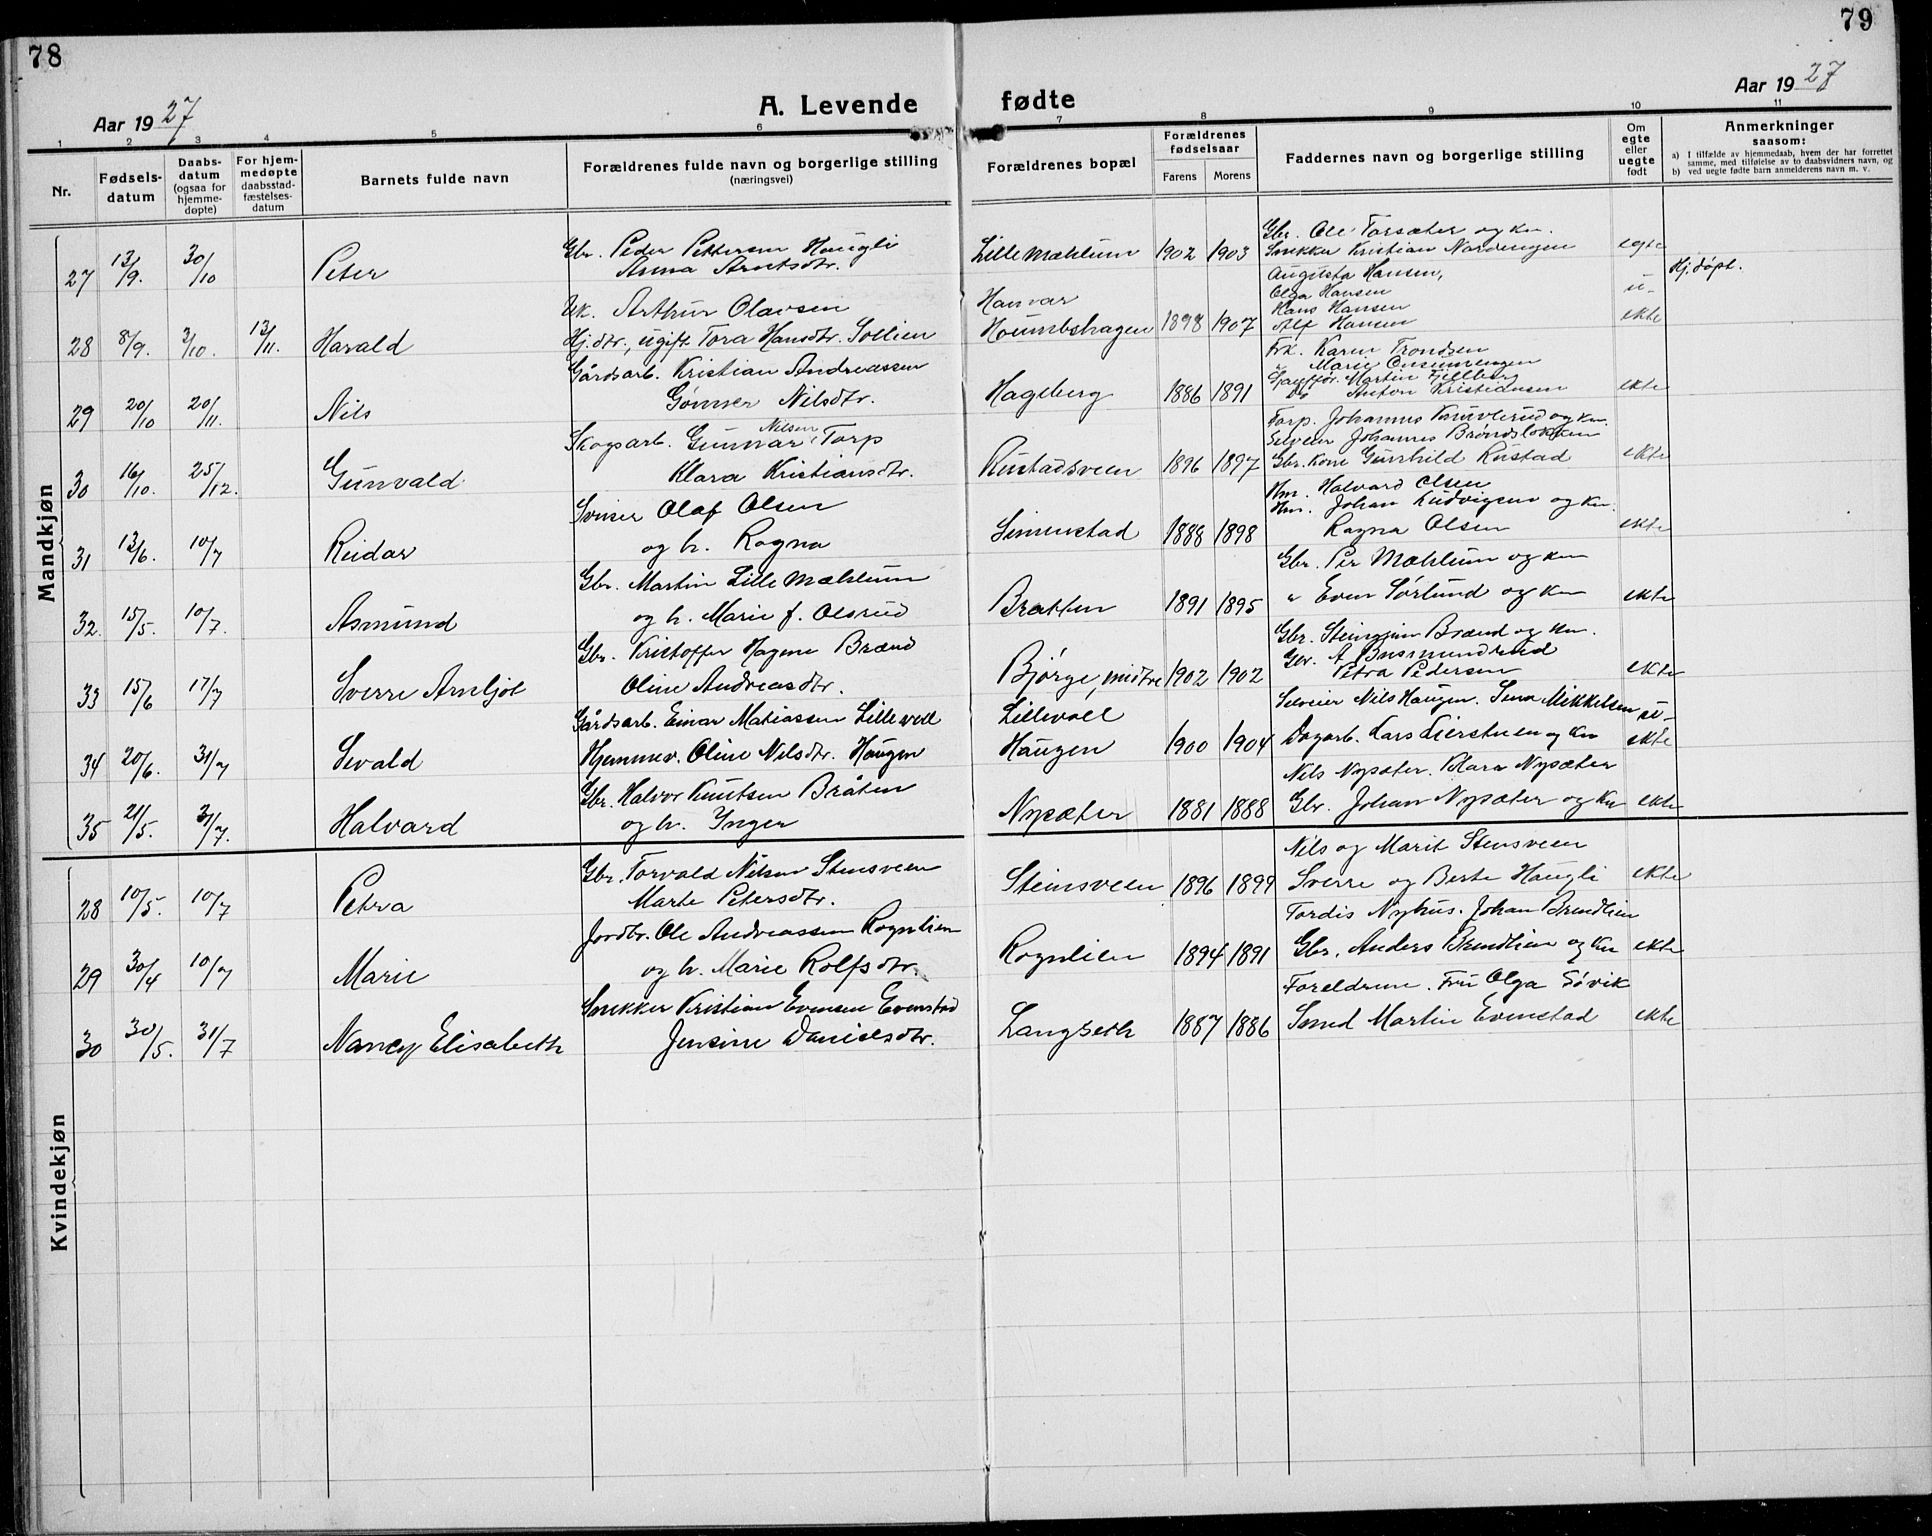 78
79
Aar 1927
A. Levende fødte
Aar 1927
1 2 3 4 5 6 7 8 9 10 11
Nr.
Fødsels-datum
Daabs-datum (ogsaa for hjemme-døpte)
For hjem-medøpte daabsstad-fæstelses-datum
Barnets fulde navn
Forældrenes fulde navn og borgerlige stilling (næringsvei)
Forældrenes bopæl
Forældrenes fødselsaar
Farens Morens
Faddernes navn og borgerlige stilling
Om egte eller uegte født
Anmerkninger saasom:
a) I tilfælde av hjemmedaab, hvem der har forrettet samme, med tilføielse av to daabsvidners navn, og
b) ved uegte fødte barn anmelderens navn m. v.
Mandkjøn
27 13/9. 30/10 Peter
Gbr. Peder Pettersen Haugli
Anna Arntsdtr.
Lille Mæhlum 1902 1903
Gbr. Ole Torsæter og kn.
Snekker Kristian Nordengen
egte
28 8/9. 3/10. 13/11. Harald
Uk. Arthur Olavsen
Hj.dtr., ugift Tora Hansdtr. Sollien
Hamar
Houmbshagen 1898 1907
Augusta Hansen,
Olga Hansen
Hans Hansen
Alf Hansen
u-
ekte
Hj.døpt.
29 20/10 20/11. Nils
Gårdsarb. Kristian Andreassen
Gønner Nilsdtr.
Hagsberg 1886 1891
Frk. Karen Trondsen
" Marie
Martin Fjellberg
Do Anton Kristiansen
ekte
30 16/10. 25/12. Gunvald
Skogsarb. Gunnar Nilsen Torp
Klara Kristiansdtr.
Rustadsveen 1896 1897
Torp. Johannes Knuvlerud og kn.
Selveier Johannes Brøndslokken
Gbr. kone Gunhild Rustad
ekte
31 13/6. 10/7 Reidar
Sviser Olaf Olsen
og h. Ragna
Simenstad 1888 1898
Hm. Halvard Olsen
Hm. Johan Ludvigsen og kn.
Ragna Olsen
ekte
32. 15/5. 10/7. Asmund
Gbr. Martin Lille Mæhlum
og h. Marie f. Olsrud
Bratten 1891 1895
Gbr. Per Mæhlum og kn
" Even Sørlund og kn
ekte
33 15/6 17/7 Sverre Arnljot
Gbr. Kristoffer Hagen Brænd
Oline Andreasdtr.
Bjørge, midtre 1902 1902
Gbr. Steingrim Brænd og kn.
Gbr. A Busmundrud
Petra Pedersen
ekte
34 20/6. 31/7 Sevald
Gårdsarb. Einar Matiassen Lillevoll
Hjemmev. Oline Nilsdtr. Haugen
Lillevoll
Haugen 1900 1904
Selveier Nils Haugen. Lina Mikkelsen
Dagarb. Lars Lierstuen og kn
u-
ekte
35 21/5. 31/7. Halvard
Gbr. Halvor Knutsen Bråten
og h. Inger
Nysæter 1881 1888
Nils Nysæter. Klara Nysæter
Gbr. Johan Nysæter og kn
ekte
Kvindekjøn
28 10/5. 10/7 Petra
Gbr. Torvald Nilsen Stensveen
Marte Petersdtr.
Steinsveen 1896 1899
Nils og Marit Stensveen
Sverre og Berte Haugli
ekte
29 30/4 10/7 Marie
Jordbr. Ole Andreassen Rognlien
og h. Marie Rolfsdtr.
Rognlien 1894 1891
Tordis Nyhus. Johan Brendlien
Gbr. Anders Brendlien og kn
ekte
30 30/5. 31/7 Nancy Elisabeth
Snekker Kristian Evensen Evenstad
Jensine Danielsdtr.
Langseth 1887 1886
Foreldrene. Fru Olga Søvik
Smed Martin Evenstad
ekte